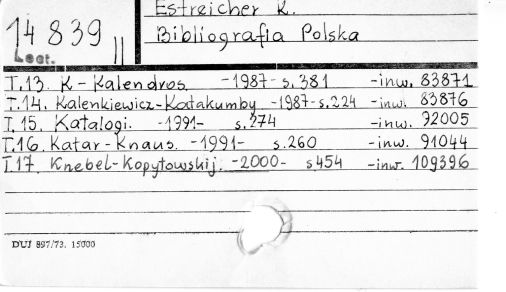 Estreicher K.
14 839 II
Bibliografia Polska
Lect.
T.13. K-Kalendros. -1987- s.381 -inw. 83871
T.14. Kalenkiewicz-Katakumby -1987-s.224 -inw. 83876
T.15. Katalogi. -1991- s.274 -inw. 92005
T.16. Katar-Knaus. -1991- s.260 -inw. 91044
T.17. Knebel-Kopytowskij. -2000- s454 -inw. 109396
DUJ 897/73. 15000